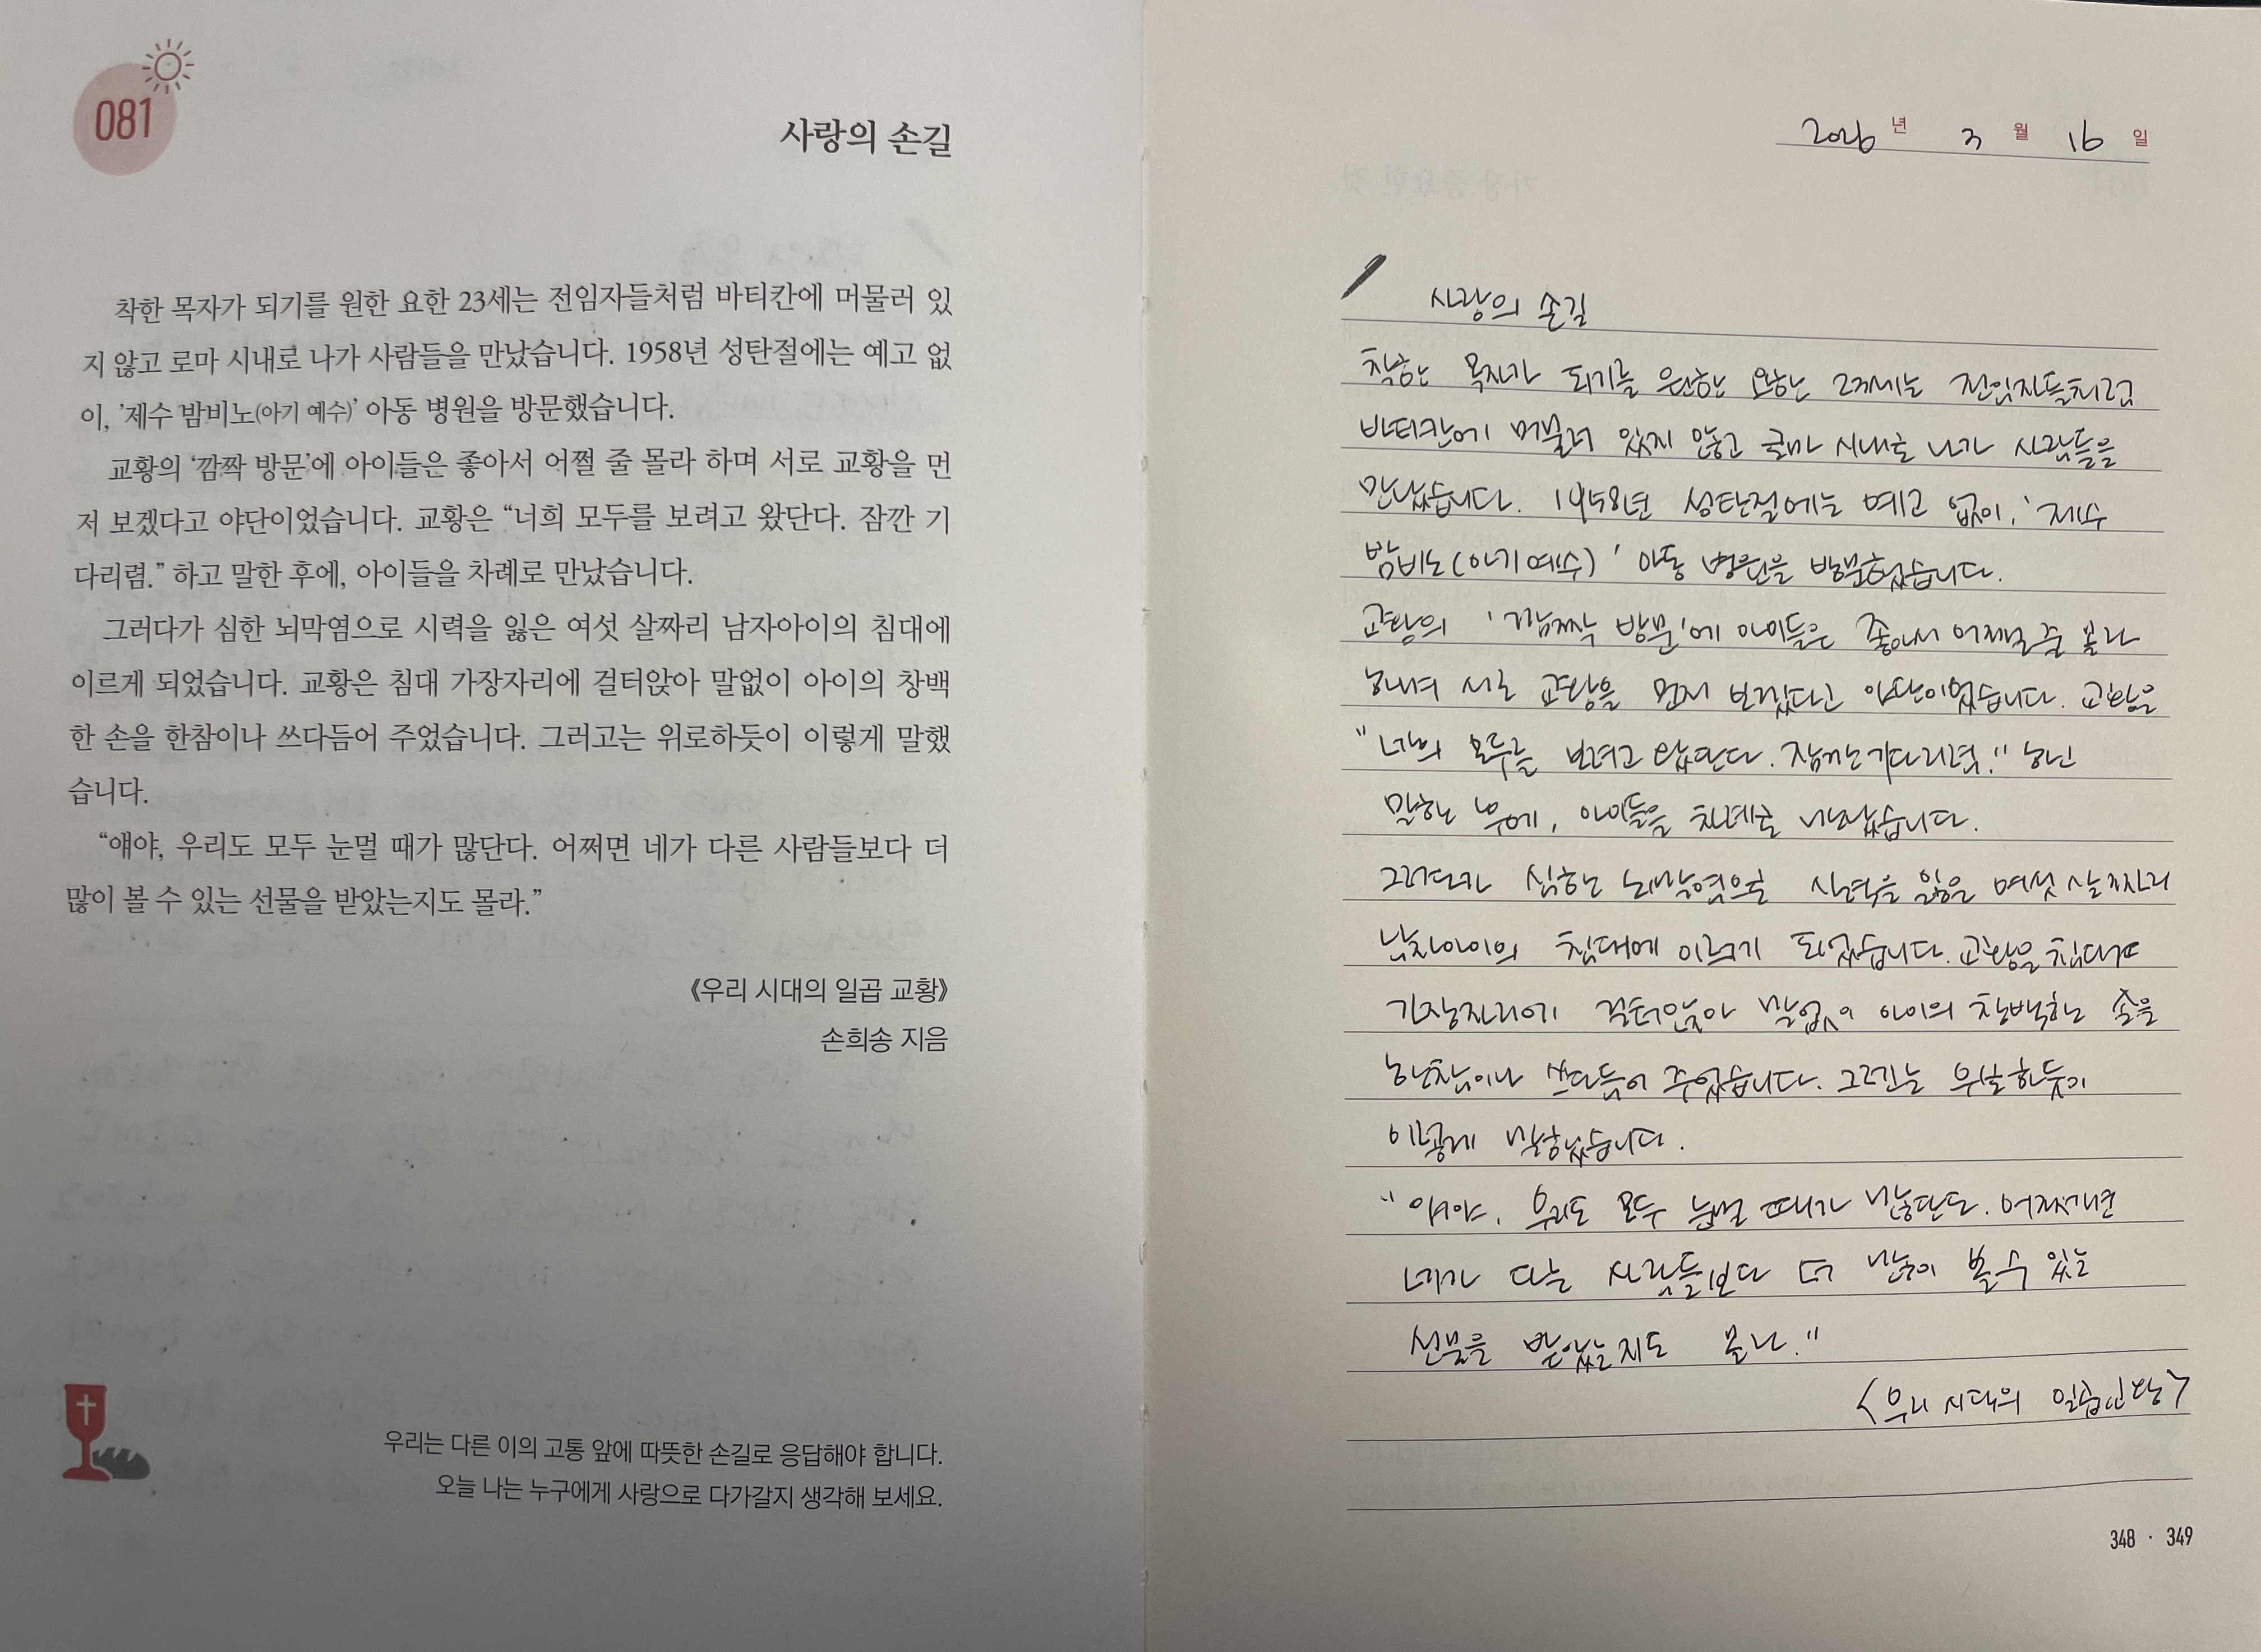 081
사랑의 손길
착한 목자가 되기를 원한 요한 23세는 전임자들처럼 바티칸에 머물러 있
지 않고 로마 시내로 나가 사람들을 만났습니다. 1958년 성탄절에는 예고 없
이, '제수 밤비노(아기 예수)' 아동 병원을 방문했습니다.
교황의 ‘깜짝 방문’에 아이들은 좋아서 어쩔 줄 몰라 하며 서로 교황을 먼
저 보겠다고 야단이었습니다. 교황은 “너희 모두를 보려고 왔단다. 잠깐 기
다리렴.” 하고 말한 후에, 아이들을 차례로 만났습니다.
그러다가 심한 뇌막염으로 시력을 잃은 여섯 살짜리 남자아이의 침대에
이르게 되었습니다. 교황은 침대 가장자리에 걸터앉아 말없이 아이의 창백
한 손을 한참이나 쓰다듬어 주었습니다. 그러고는 위로하듯이 이렇게 말했
습니다.
“얘야, 우리도 모두 눈멀 때가 많단다. 어쩌면 네가 다른 사람들보다 더
많이 볼 수 있는 선물을 받았는지도 몰라.”
《우리 시대의 일곱 교황》
손희송 지음
우리는 다른 이의 고통 앞에 따뜻한 손길로 응답해야 합니다.
오늘 나는 누구에게 사랑으로 다가갈지 생각해 보세요.
2026년 3월 16일
사랑의 손길
착한 목자가 되기를 원한 요한 23세는 전임자들처럼
바티칸에 머물러 있지 않고 로마 시내로 나가 사람들을
만났습니다. 1958년 성탄절에는 예고 없이, '제수
밤비노(아기 예수)' 아동 병원을 방문했습니다.
교황의 '깜짝 방문'에 아이들은 좋아서 어쩔 줄 몰라
하며 서로 교황을 먼저 보겠다고 야단이었습니다. 교황은
"너희 모두를 보려고 왔단다. 잠깐 기다리렴." 하고
말한 후에, 아이들을 차례로 만났습니다.
그러다가 심한 뇌막염으로 시력을 잃은 여섯 살짜리
남자아이의 침대에 이르게 되었습니다. 교황은 침대
가장자리에 걸터앉아 말없이 아이의 창백한 손을
한참이나 쓰다듬어 주었습니다. 그러고는 위로하듯이
이렇게 말했습니다.
"얘야, 우리도 모두 눈멀 때가 많단다. 어쩌면
네가 다른 사람들보다 더 많이 볼 수 있는
선물을 받았는지도 몰라."
<우리 시대의 일곱교황>
348 · 349